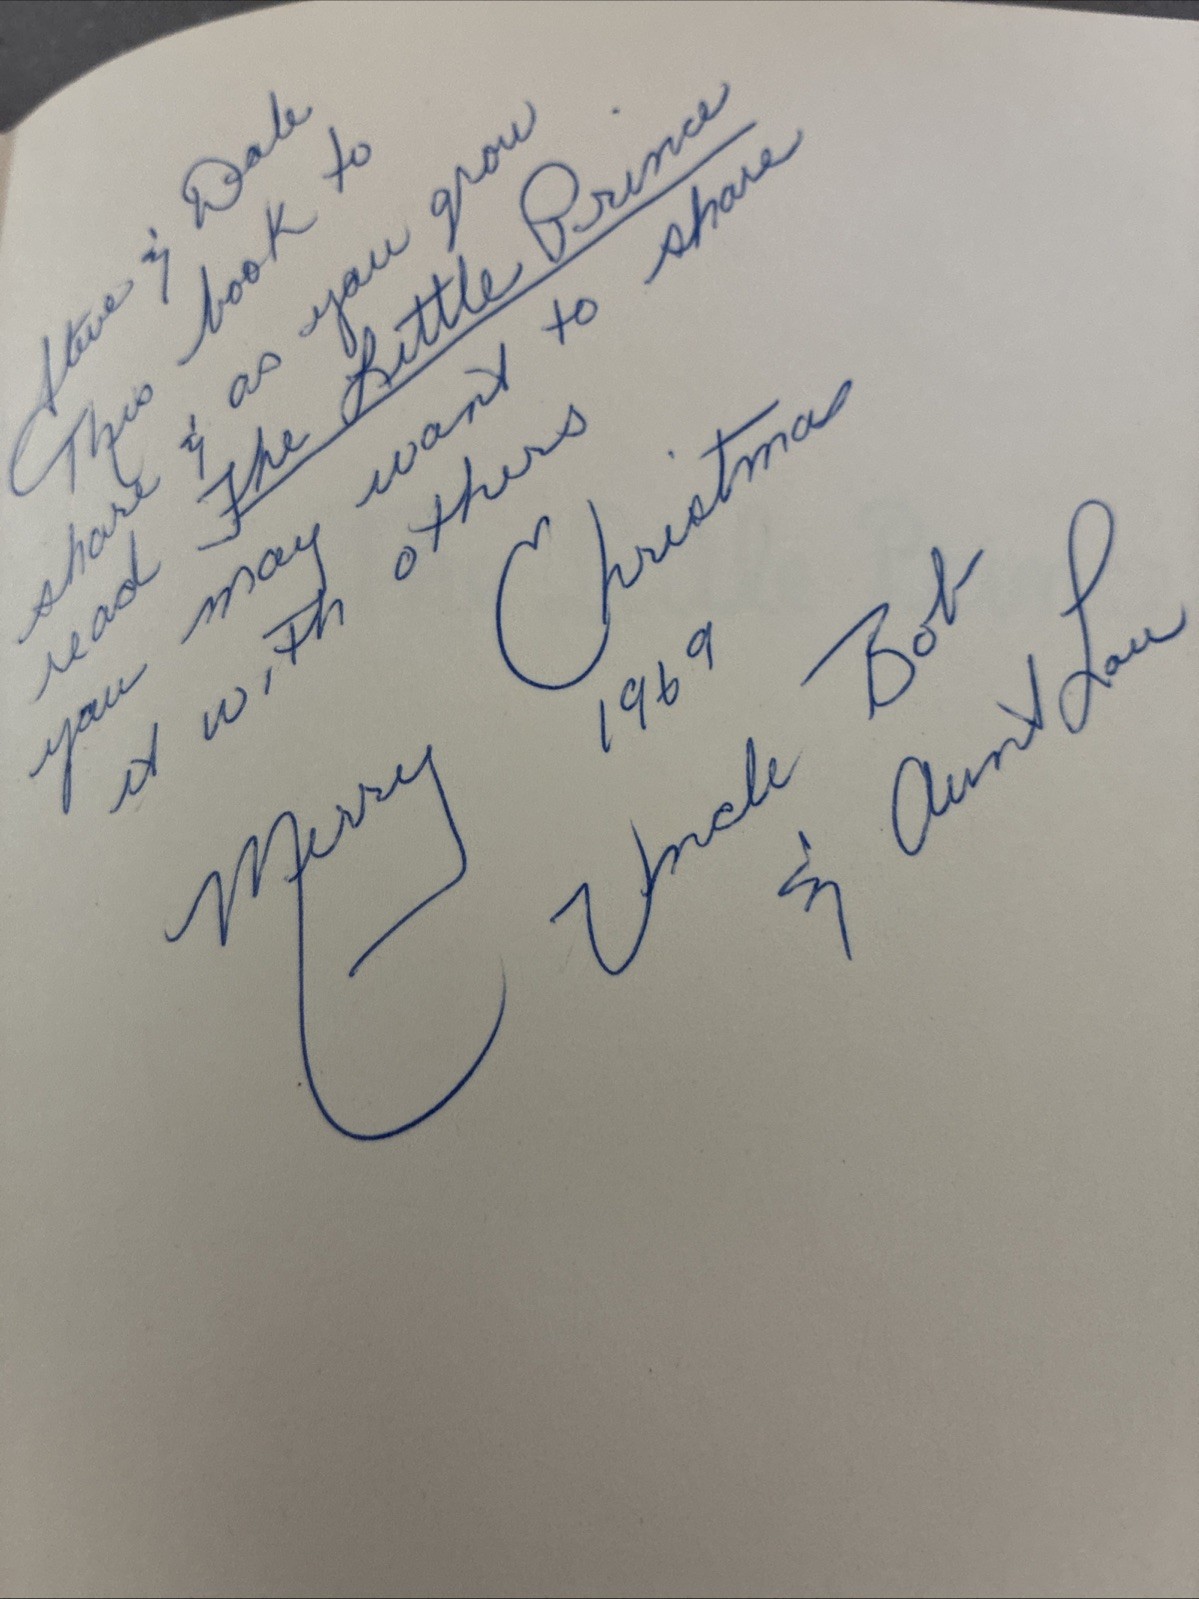 Steve & Dale
This book to
share & as you grow
read The Little Prince
you may want to share
it with others
Merry Christmas
1969
Uncle Bob
& Aunt Lou